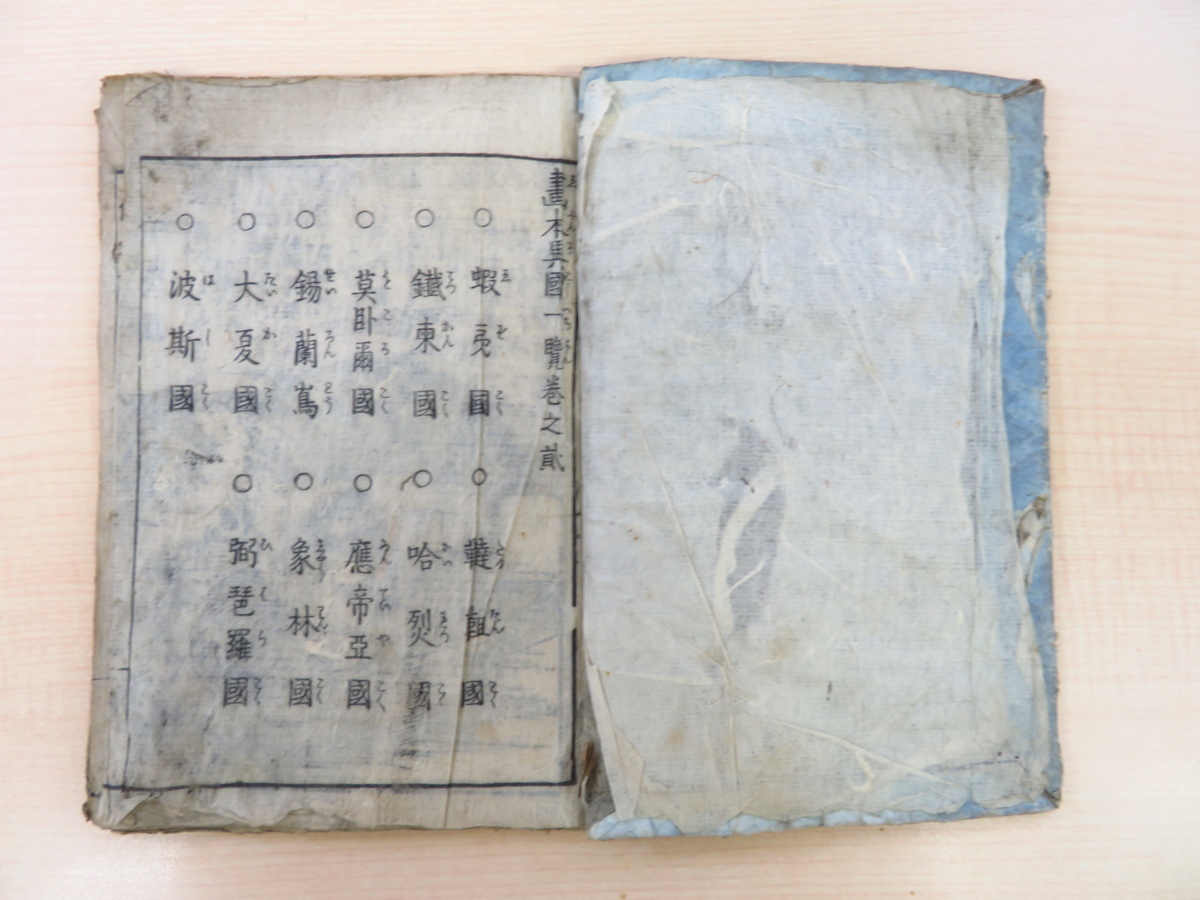 畫本異國一覽卷之貳
○蝦夷國 ○韃靼國
○鐵東國 ○哈烈國
○莫臥爾國 ○應帝亞國
○錫蘭嶌 ○象林國
○大夏國 ○弼琶羅國
○波斯國